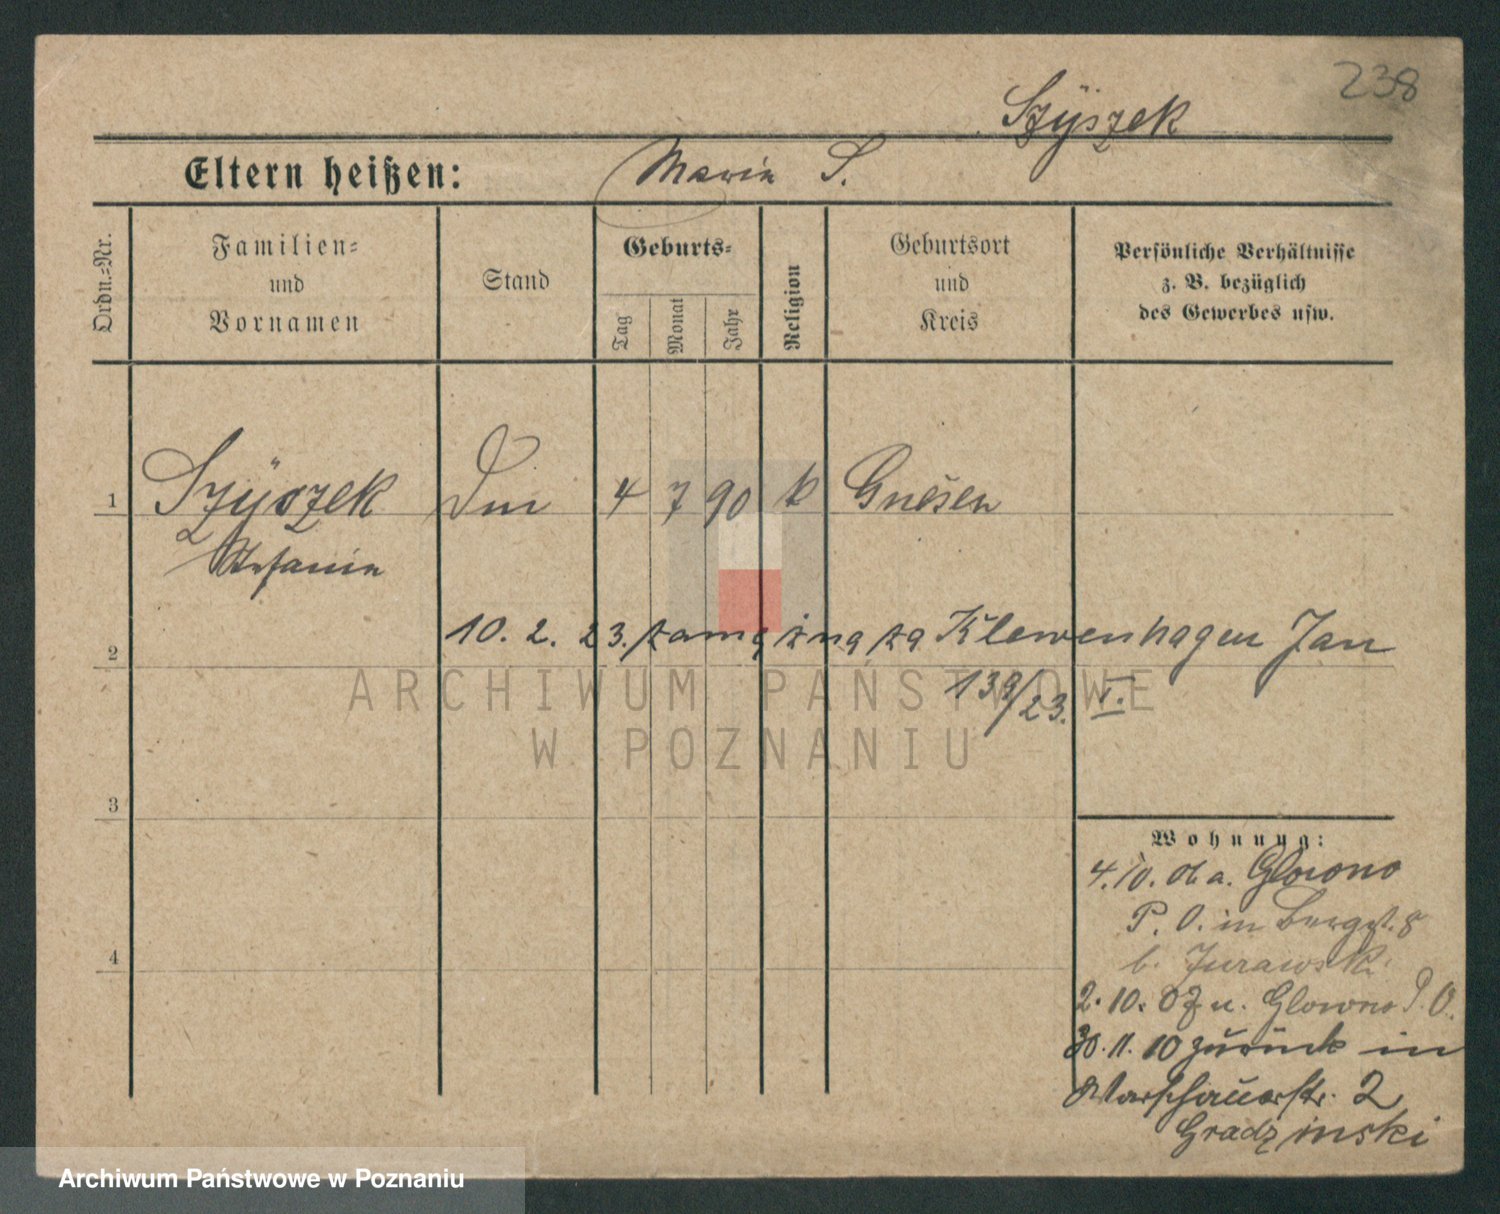 238
Szÿszek
Eltern heißen: Maria S.
Ordn.-Nr.
Familien-
und
Vornamen
Stand
Geburts-
Tag
Monat
Jahr
Religion
Geburtsort
und
Kreis
Persönliche Verhältnisse
z. B. bezüglich
des Gewerbes usw.
1 Szÿszek 4 7 90 k Gnesen
Stefania
2 10. 2. 23. zamężna za Klewenhagen Jan
139/23. I.
3
4
Wohnung:
4. 10. 06 a. Glowno
P. O. in Bergst. 8
b. Jurawski
2. 10. 07 n. Glowno P. O.
30. 11. 10 zurück in
Warschauerstr. 2
Gradzinski
ARCHIWUM PAŃSTWOWE
W POZNANIU
Archiwum Państwowe w Poznaniu